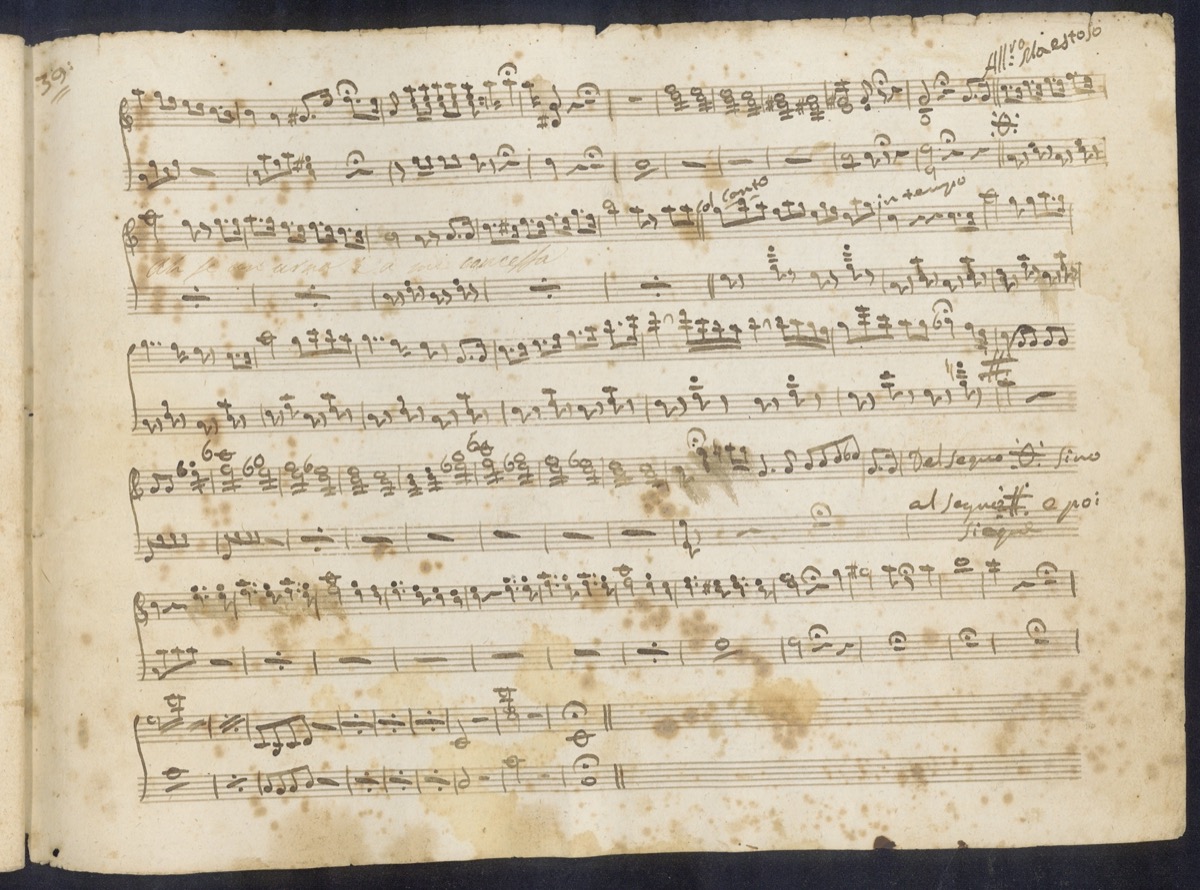 39:
All:vo Maestoso
col canto
in tempo
Ah se un urna è a me concessa
Del segno sino
al segno e poi
Siegue